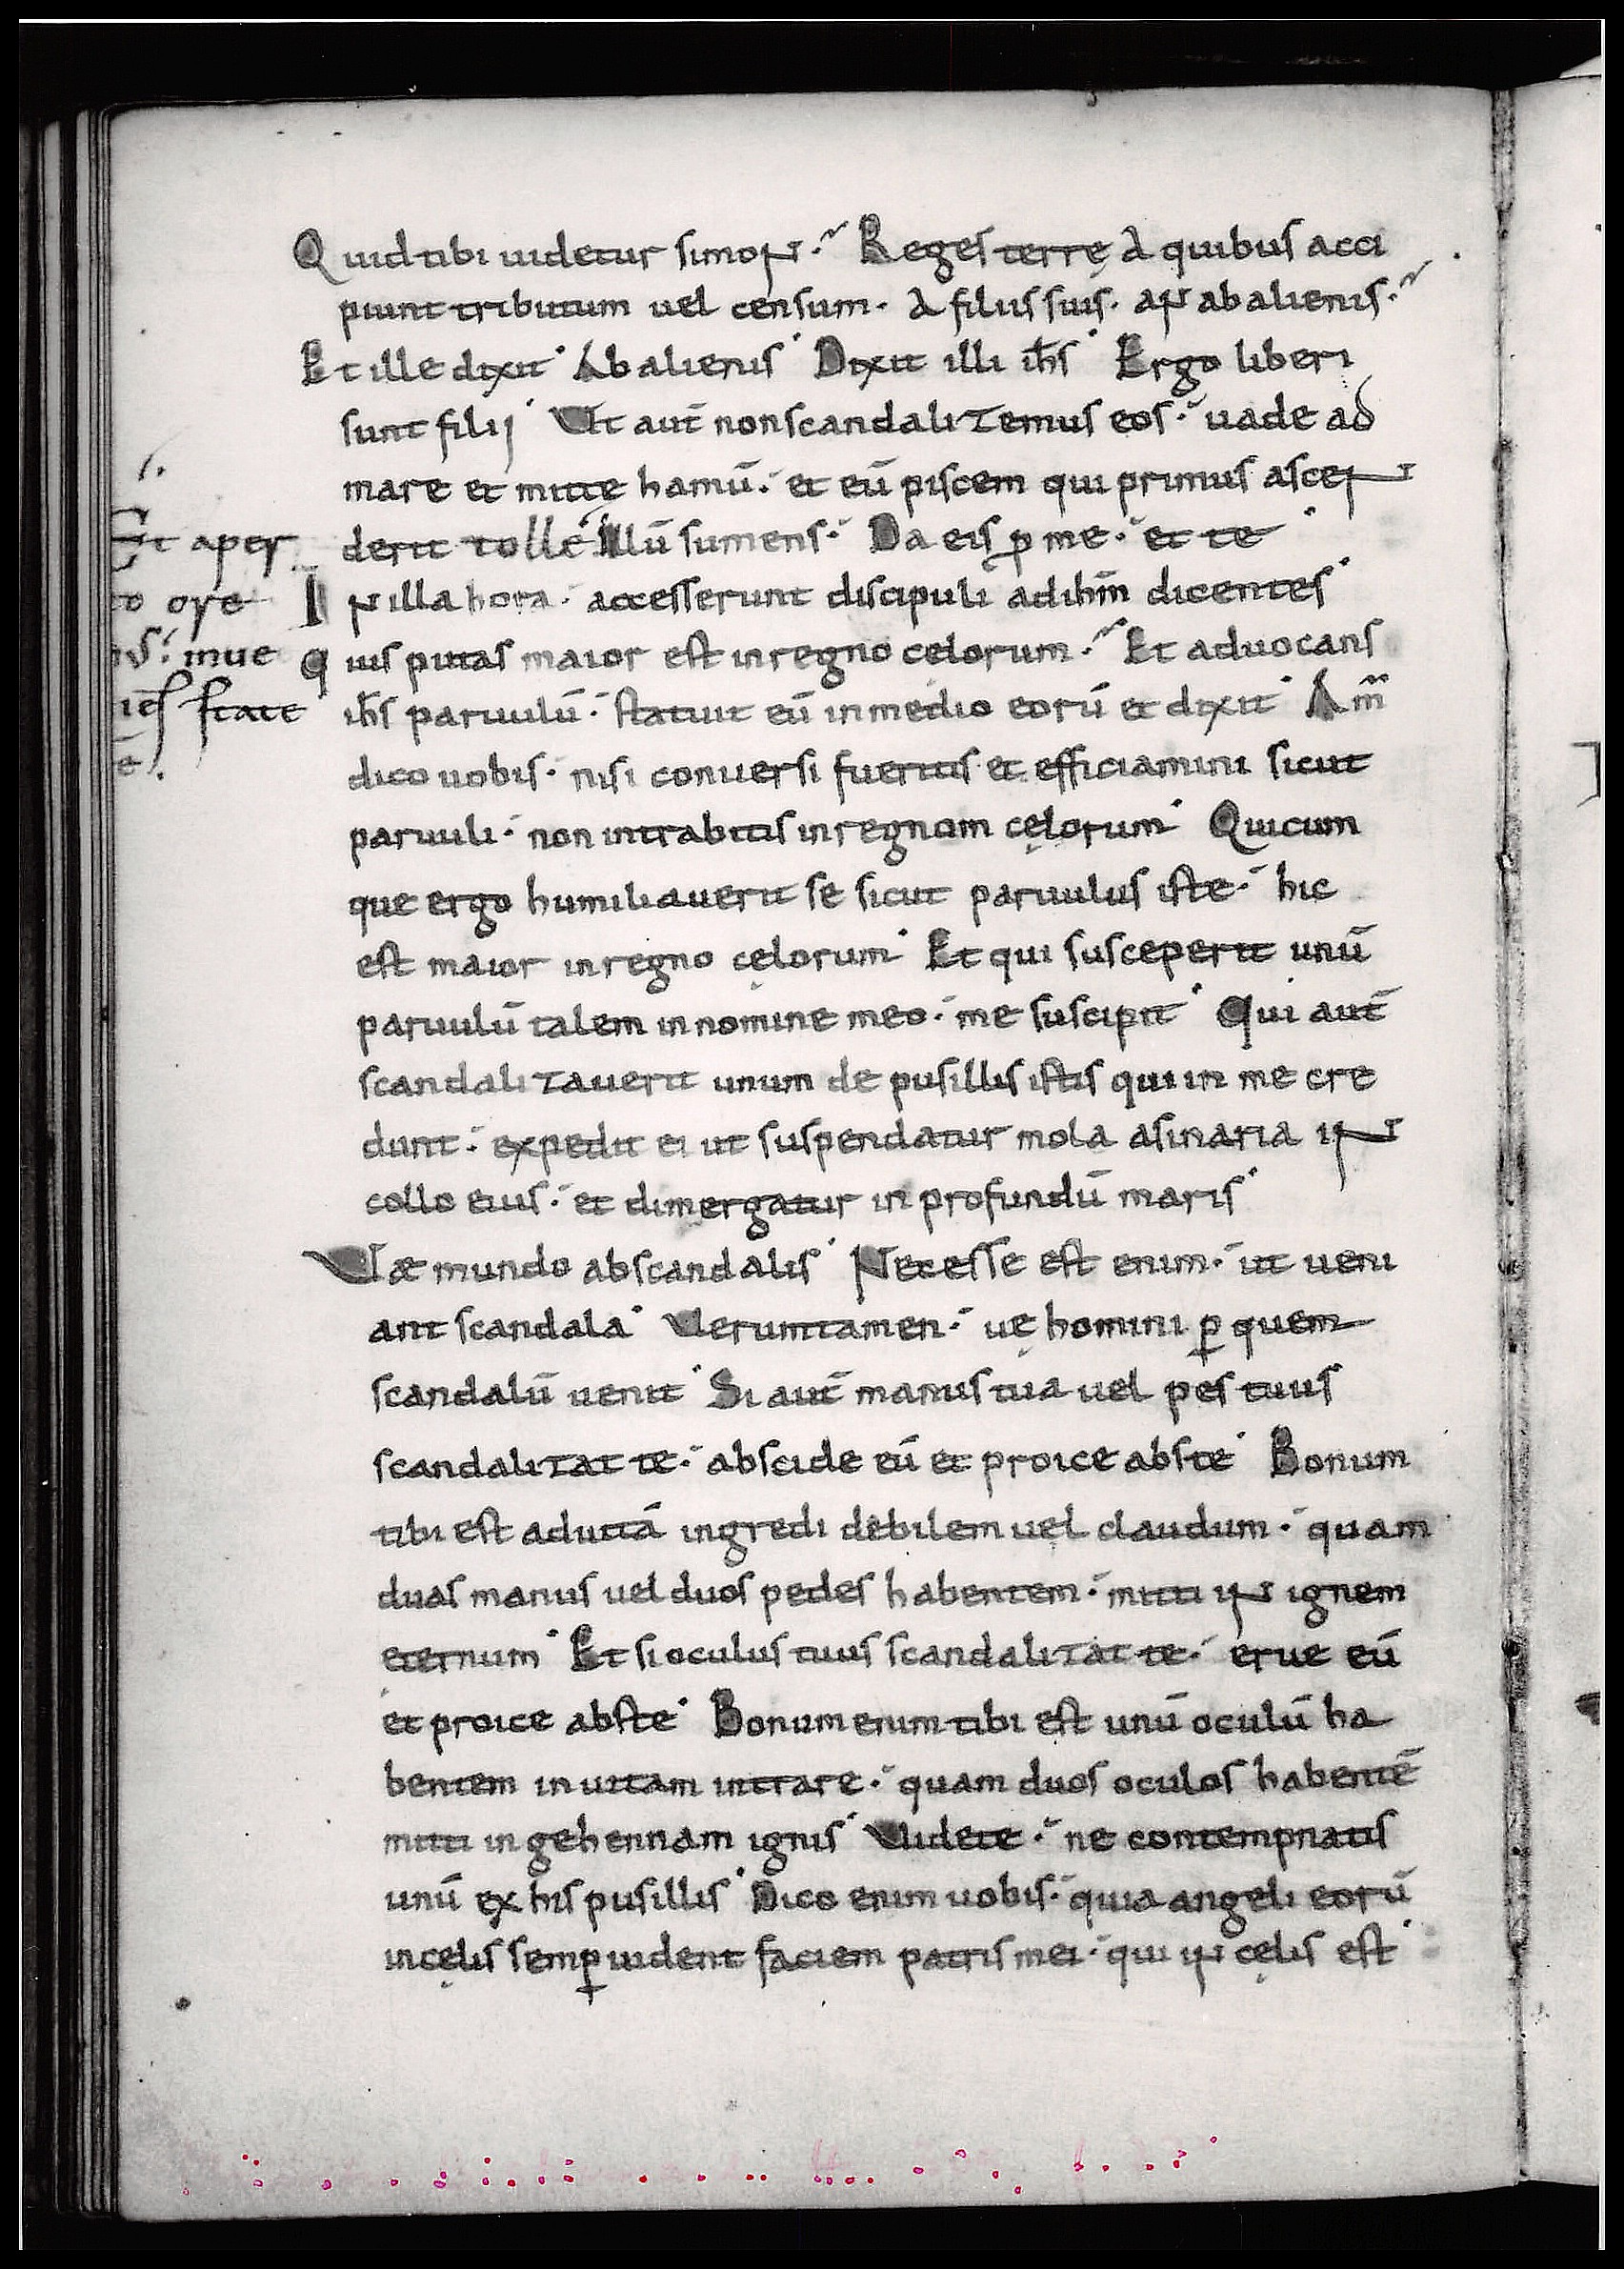 Quid tibi uidetur simon. Reges terrę a quibus acci
piunt tributum uel censum. a filiis suis. an ab alienis.
Et ille dixit Ab alienis Dixit illi ihs̄ Ergo liberi
sunt filij Ut aut̄ non scandalizemus eos. uade ad
mare et mitte hamū. et eū piscem qui primus ascen
derit tolle Illū sumens. Da eis ꝑ me. et te
In illa hora. accesserunt discipuli ad ihm̄ dicentes
quis putas maior est in regno celorum. Et aduocans
ihs̄ paruulū. statuit eū in medio eorū et dixit Am̄
dico uobis. nisi conuersi fueritis et efficiamini sicut
paruuli. non intrabitis in regnom cęlorum Quicum
que ergo humiliauerit se sicut paruulus iste. hic
est maior in regno cęlorum Et qui susceperit unū
paruulū talem in nomine meo. me suscipit Qui aut̄
scandalizauerit unum de pusillis istis qui in me cre
dunt. expedit ei ut suspendatur mola asinaria in
collo eius. et dimergatur in profundū maris
Uæ mundo ab scandalis Necesse est enim. ut ueni
ant scandala Ueruntamen. uę homini ꝑ quem
scandalū uenit Si aut̄ manus tua uel pes tuus
scandalizat te. abscide eū et proice abs te Bonum
tibi est ad uitā ingredi debilem uel claudum. quam
duas manus uel duos pedes habentem. mitti in ignem
ęternum Et si oculus tuus scandalizat te. erue eū
et proice abs te Bonum enim tibi est unū oculū ha
bentem in uitam intrare. quam duos oculos habentē
mitti in gehennam ignis Uidete. ne contempnatis
unū ex his pusillis Dico enim uobis. quia angeli eorū
in cęlis semꝑ uident faciem patris mei. qui in cęlis est
Et aper
to ore
inue
ies state